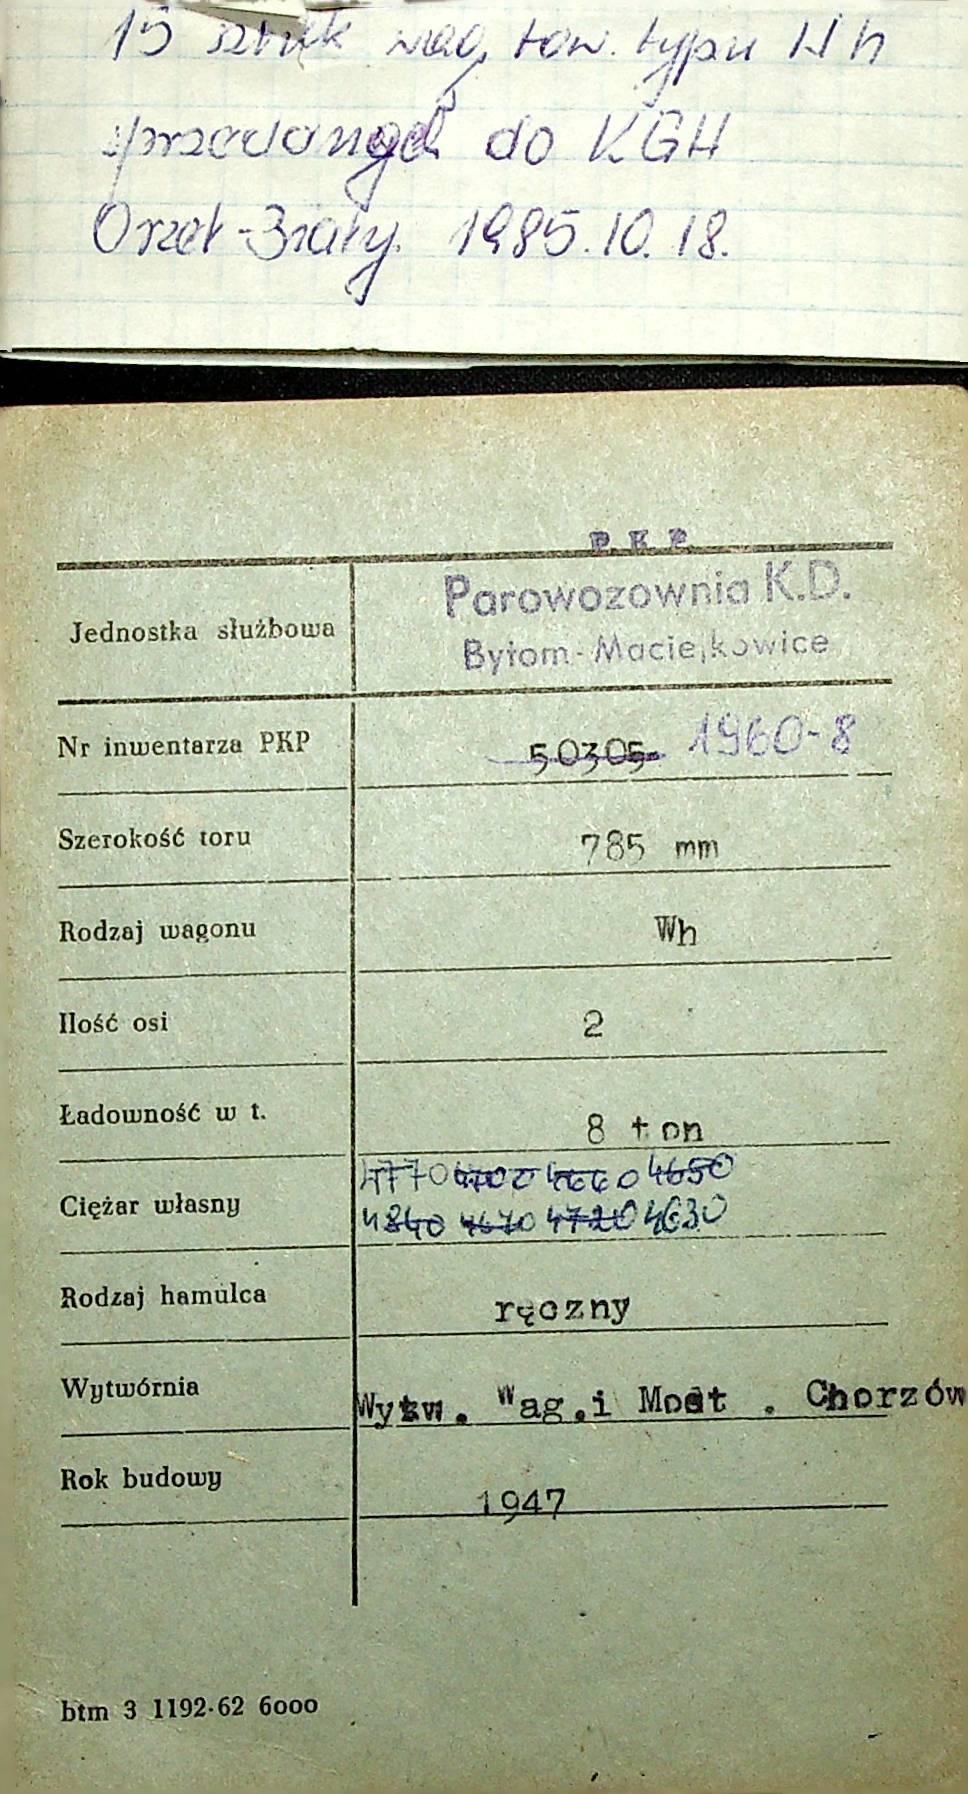 15 sztuk wag. tow. typu Wh
sprzedanych do KGH
Orzeł-Biały. 1985.10.18.
P. K. P.
Jednostka służbowa Parowozownia K.D.
Bytom-Maciejkowice
Nr inwentarza PKP 50305 1960-8
Szerokość toru 785 mm
Rodzaj wagonu Wh
Ilość osi 2
Ładowność w t. 8 ton
4770 4700 4660 4650
Ciężar własny
4840 4670 4720 4630
Rodzaj hamulca ręczny
Wytwórnia Wytw. Wag.i Most . Chorzów
Rok budowy 1947
btm 3 1192-62 6000